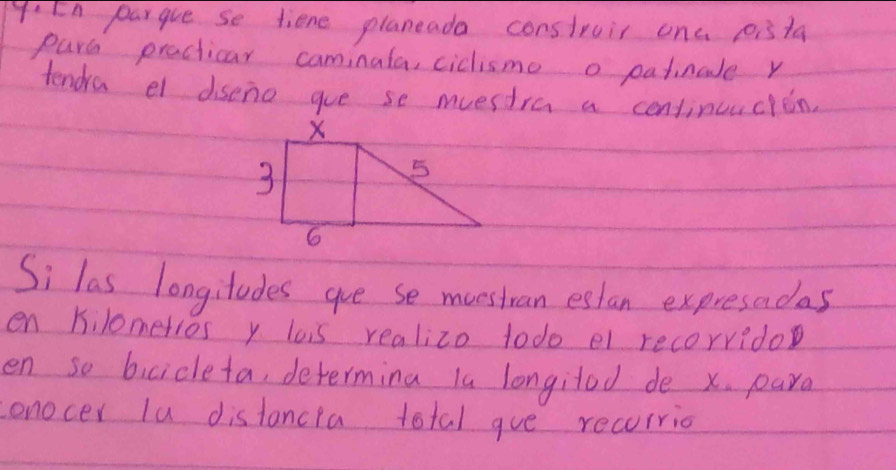 4. En parque se tiene planeado construir una pista
para practicar caminata, ciclismo o patinale y
tendra el diseño que se muestra a continuación.
x
3
5
6
Si las longitudes que se muestran estan expresadas
en Kilometros y luis realizo todo el recorrido
en se bicicleta, determina la longitod de x. para
conocer la distancia total que recurrio